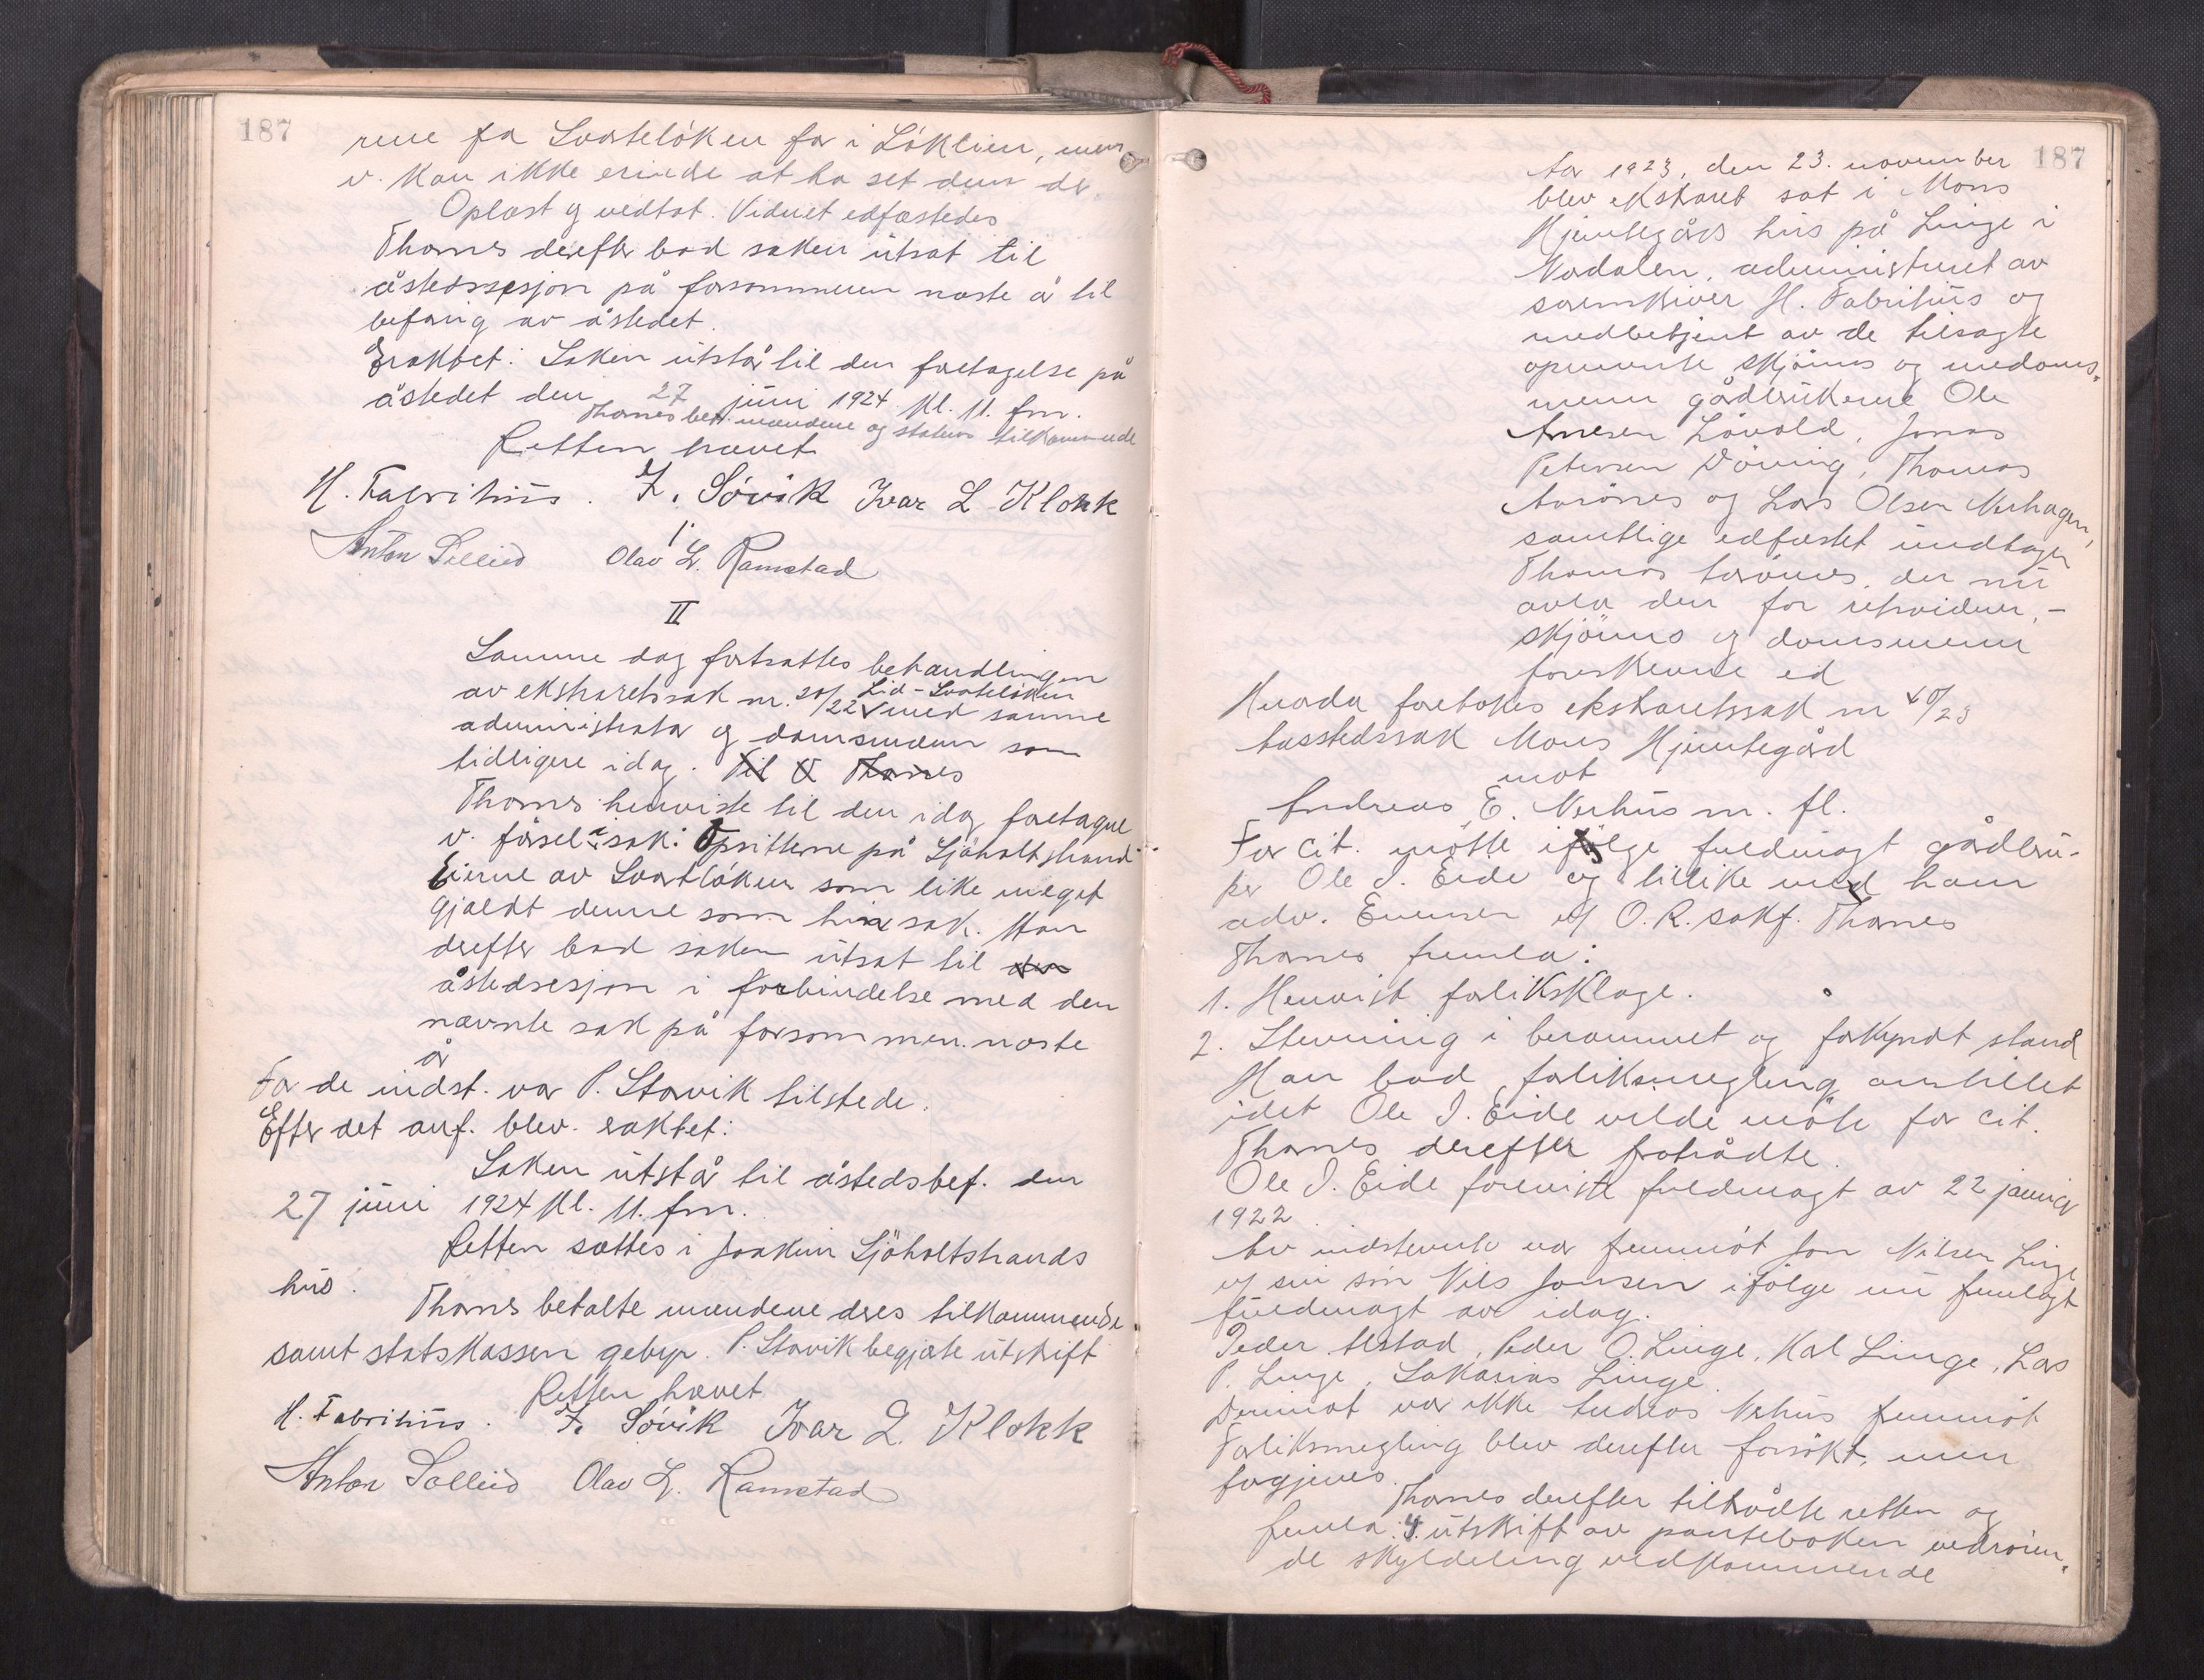 187
rene fra Svarteløken for i Løklien, men
v. kan ikke erindre at ha set dem der.
Oplæst og vedtat. Vidnet edfæstedes
Thomes derefter bad saken utsat til
åstedssesjon på forsommeren næste år til
befaring av åstedet.
Eraktet: Saken utstår til den foretagelse på
åstedet den 27 juni 1924 kl. 11. fm.
Thomes bet. mændene og statens tilkommende
Retten hævet
H. Fabritius. Z. Søvik Ivar L Klokk
Anton Solleid Olav L. Ramstad
II
Samme dag fortsattes behandlingen
av ekstraretssak nr. 20/22 Lid-Svarteløken med samme
administrator og domsmenn som
tidligere idag. Til V Thomes
Thomes henviste til den idag foretagne
v. førsel i sak: Opsitterne på Sjøholtstrand
Eierne av Svartløken som like meget
gjaldt denne som hin sak. Han
derefter bad saken utsat til den
åstedsesjon i forbindelse med den
nævnte sak på forsommeren næste
år
For de indst. var P. Stavik tilstede.
Efter det anf. blev eraktet:
Saken utstår til åstedsbef. den
27 juni 1924 kl. 11. fm.
Retten sattes i Joakim Sjøholtstrands
hus.
Thomes betalte mændene deres tilkommende
samt statskassen gebyr. P. Stavik begjærte utskrift
Retten hævet
H. Fabritius. Z. Søvik Ivar L. Klokk
Anton Solleid Olav L. Ramstad
187
År 1923, den 23. november
blev ekstraret sat i Mons
Hjemtegårds hus på Linge i
Nordalen, administreret av
sorenskriver H. Fabritius og
medbetjent av de tilsagte
opnævnte skjøns og medoms-
menn gårdbrukerne Ole
Arnesen Løvold, Jonas
Petersen Døving, Thomas
og Lars Olsen Nerhagen,
samtlige edfæstet undtagen
Thomas der nu
avla den for retsvidner, -
skjøns og domsmenn
foreskrevne ed
Hvorda foretokes ekstraretssak nr 40/23
åsstedssak Mons Hjemtegård
mot
Andreas E. Nerhus m. fl.
For cit. møtte ifølge fuldmagt gårdbru-
ker Ole I. Eide og tillike med ham
adv. Evensen ved O.R. sakf. Thomes
Thomes fremla:
1. Henvist forliksklage.
2. Stevning i berammet og forkyndt stand
Han bad forliksmegling anstillet
idet Ole I. Eide vilde møte for cit.
Thomes derefter fratrådte.
Ole I. Eide foreviste fuldmagt av 22 januar
1922
Av indstevnte var fremmøt Jon Nilsen Linge
ved sin søn Nils Jonsen ifølge nu fremlagt
fuldmagt av idag.
Peder Alstad, Peder O. Linge, Karl Linge, Lars
P. Linge, Sakarias Linge.
Derimot var ikke Andreas Nerhus fremmøt
Forliksmegling blev derefter forsøkt, men
forgjeves.
Thomes derefter tiltrådte retten og
fremla: 4. utskrift av panteboken vedrøren-
de skylddeling vedkommende